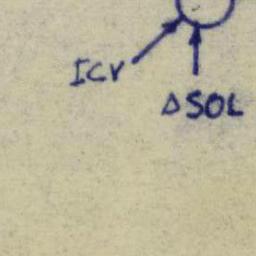 ICV
ΔSOL